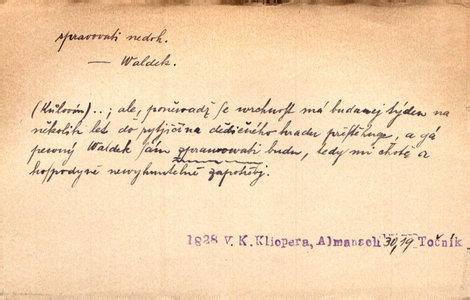 spravovati nedok.
— Waldek.
(Kůlovín)..; ale, poněwadž se wrchnost má budaucý týden na
několik let do pytjčina dědičného hradu přistěhuge, a gá
pewný Waldek sám zprawowati budu, tedy mi chotě a
hospodyně newyhnutelně zapotřebj.
1828 V. K. Klicpera, Almanach 30,19 Točník